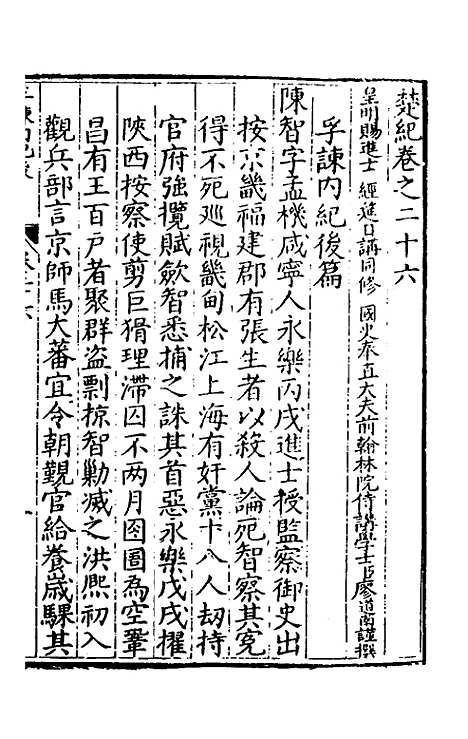 楚紀卷之二十六
皇明賜進士 經筵日講同修 國史奉直大夫前翰林院侍講學士臣廖道南謹撰
孚諫內紀後篇
陳智字孟機咸寧人永樂丙戌進士授監察御史出
按京畿福建郡有張生者以殺人論死智察其冤
得不死巡視畿甸松江上海有奸黨十八人刼持
官府強攬賦歛智悉捕之誅其首惡永樂戊戌擢
陝西按察使剪巨猾理滯囚不兩月囹圄為空鞏
昌有王百戶者聚群盜剽掠智勦滅之洪熙初入
觀兵部言京師馬大蕃宜令朝覲官給養歲騍其